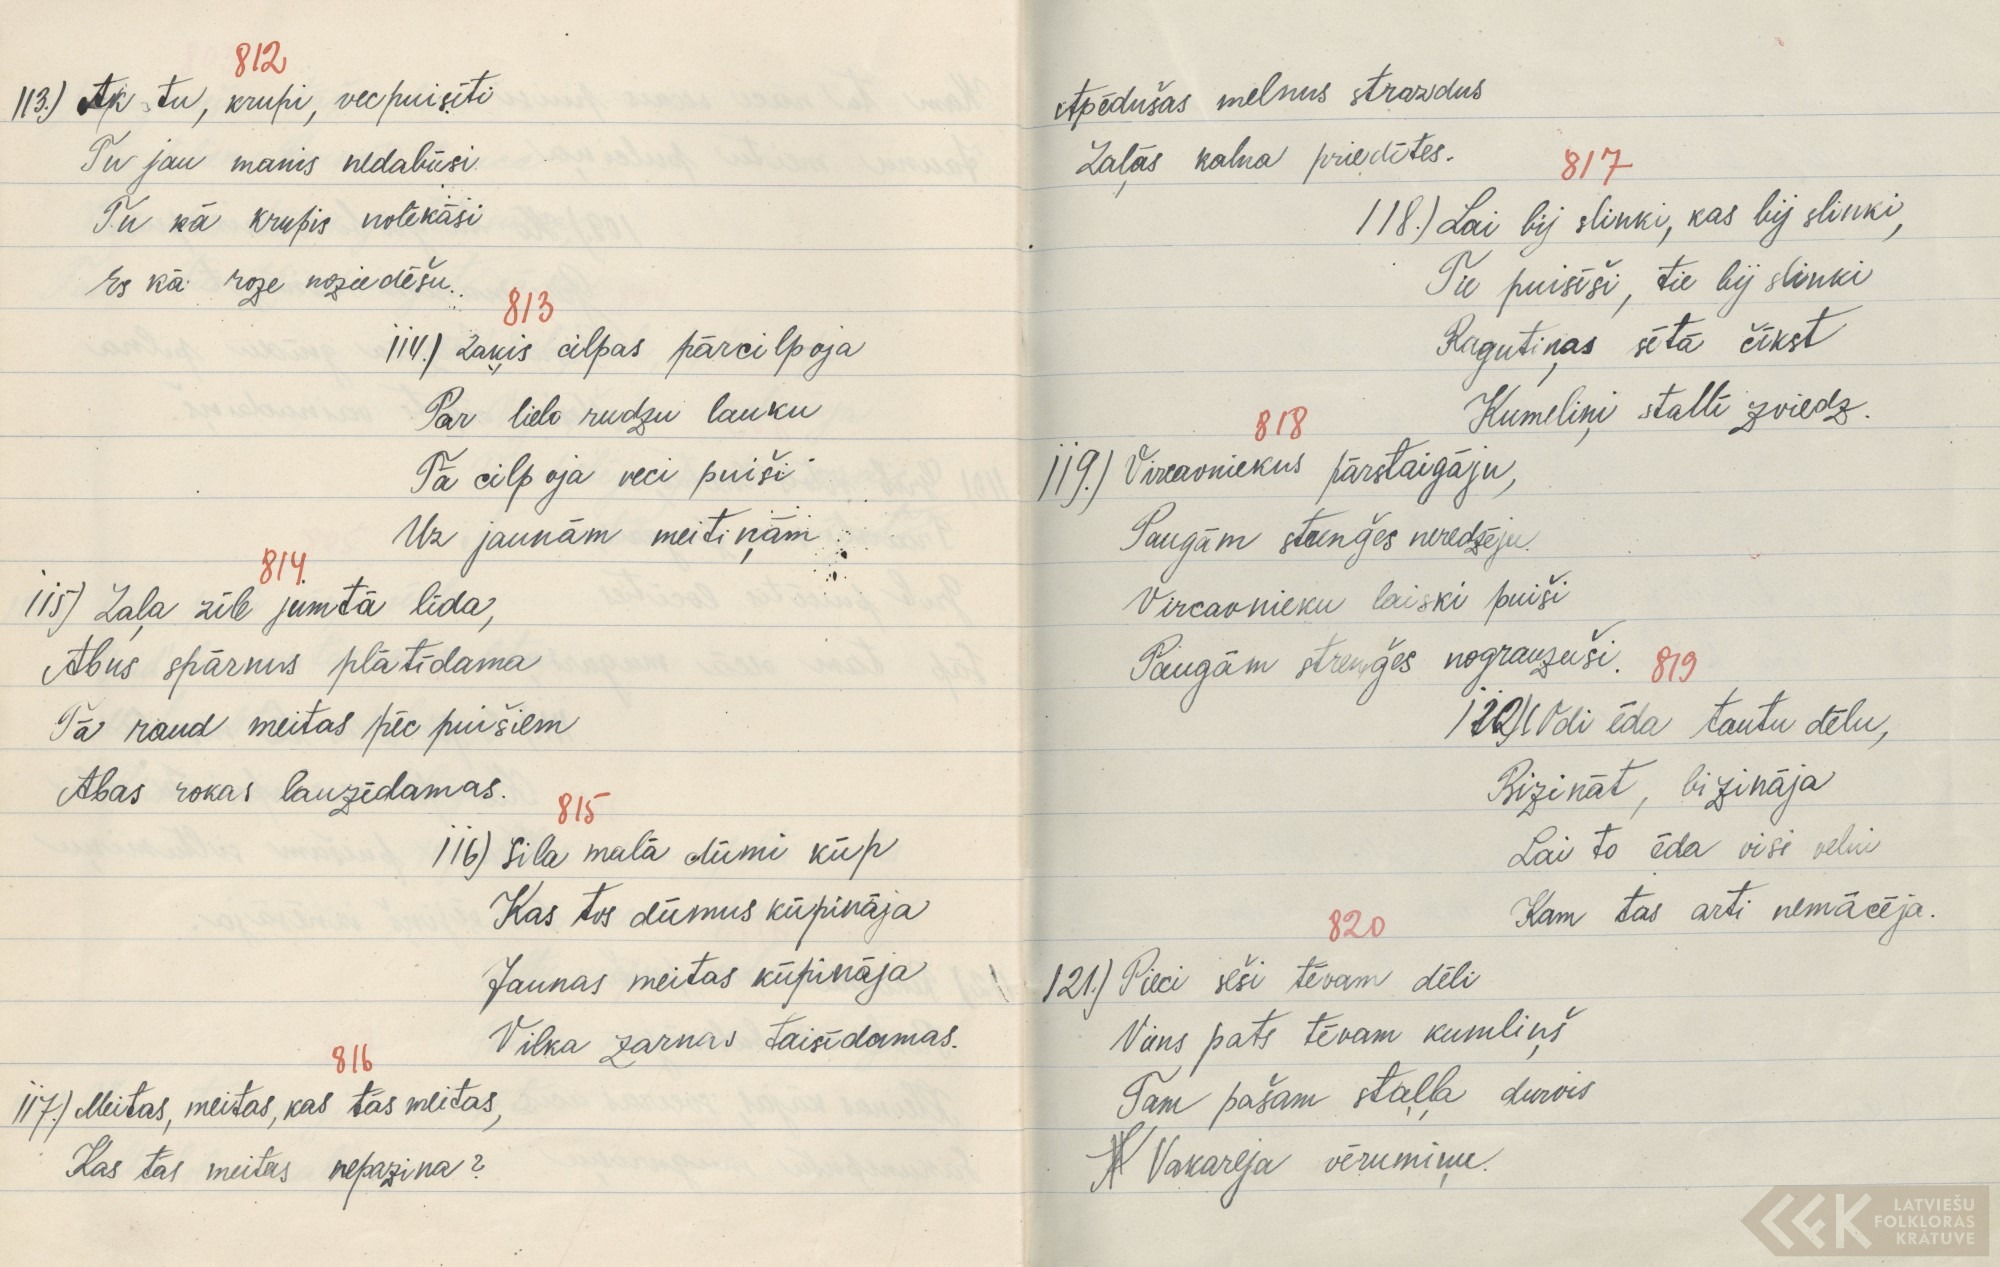 812
113.) Ak tu, krupi, vecpuisīti
Tu jau manis nedabūsi
Tu kā krupis notekāsi
Es kā roze noziedēšu.
813
114.) Zaķis cilpas pārcilpoja
Par lielo rudzu lauku
Tā cilpoja veci puiši
Uz jaunām meitiņām
814
115) Zaļa zīle jumtā līda,
Abus spārnus plātīdama
Tā raud meitas pēc puišiem
Abas rokas lauzīdamas.
815
116) Sila malā dūmi kūp
Kas tos dūmus kūpināja
Jaunas meitas kūpināja
Vilka zarnas taisīdamas.
816
117.) Meitas, meitas, kas tās meitas,
Kas tās meitas nepazina?
Apēdušas melnus strazdus
Zaļās kalna priedītes.
817
118.) Lai bij slinki, kas bij slinki,
Tie puisīši, tie bij slinki
Ragutiņas sētā čīkst
Kumeliņi stallī zviedz.
818
119.) Vircavniekus pārstaigāju,
Paugām strenģes neredzēju.
Vircavnieku laiski puiši
Paugām strenģes nograuzuši.
819
120.) Odi ēda tautu dēlu,
Bizināt, bizināja
Lai to ēda visi velni
Kam tas arti nemācēja.
820
121.) Pieci seši tēvam dēli
Viens pats tēvam kumliņš
Tam pašam staļļa durvis
Vakarēja vērumiņu.
LATVIEŠU
FOLKLORAS
KRĀTUVE